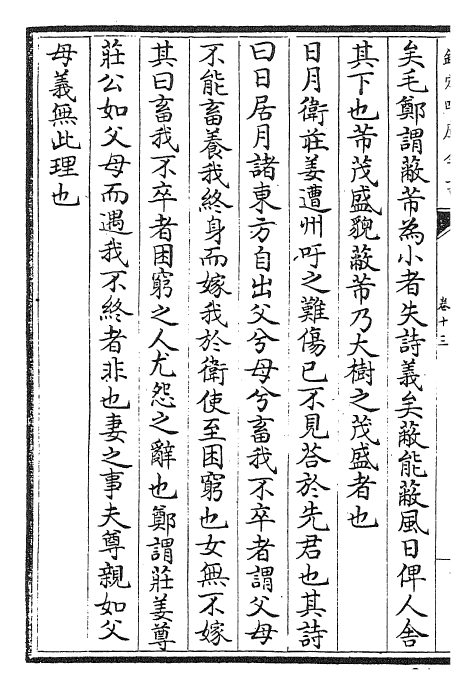 矣毛鄭謂蔽芾為小者失詩義矣蔽能蔽風日俾人舍
其下也芾茂盛貌蔽芾乃大樹之茂盛者也
日月衛莊姜遭州吁之難傷已不見荅於先君也其詩
曰日居月諸東方自出父兮母兮畜我不卒者謂父母
不能畜養我終身而嫁我於衛使至困窮也女無不嫁
其曰畜我不卒者困窮之人尤怨之辭也鄭謂莊姜尊
莊公如父母而遇我不終者非也妻之事夫尊親如父
母義無此理也
卷十三